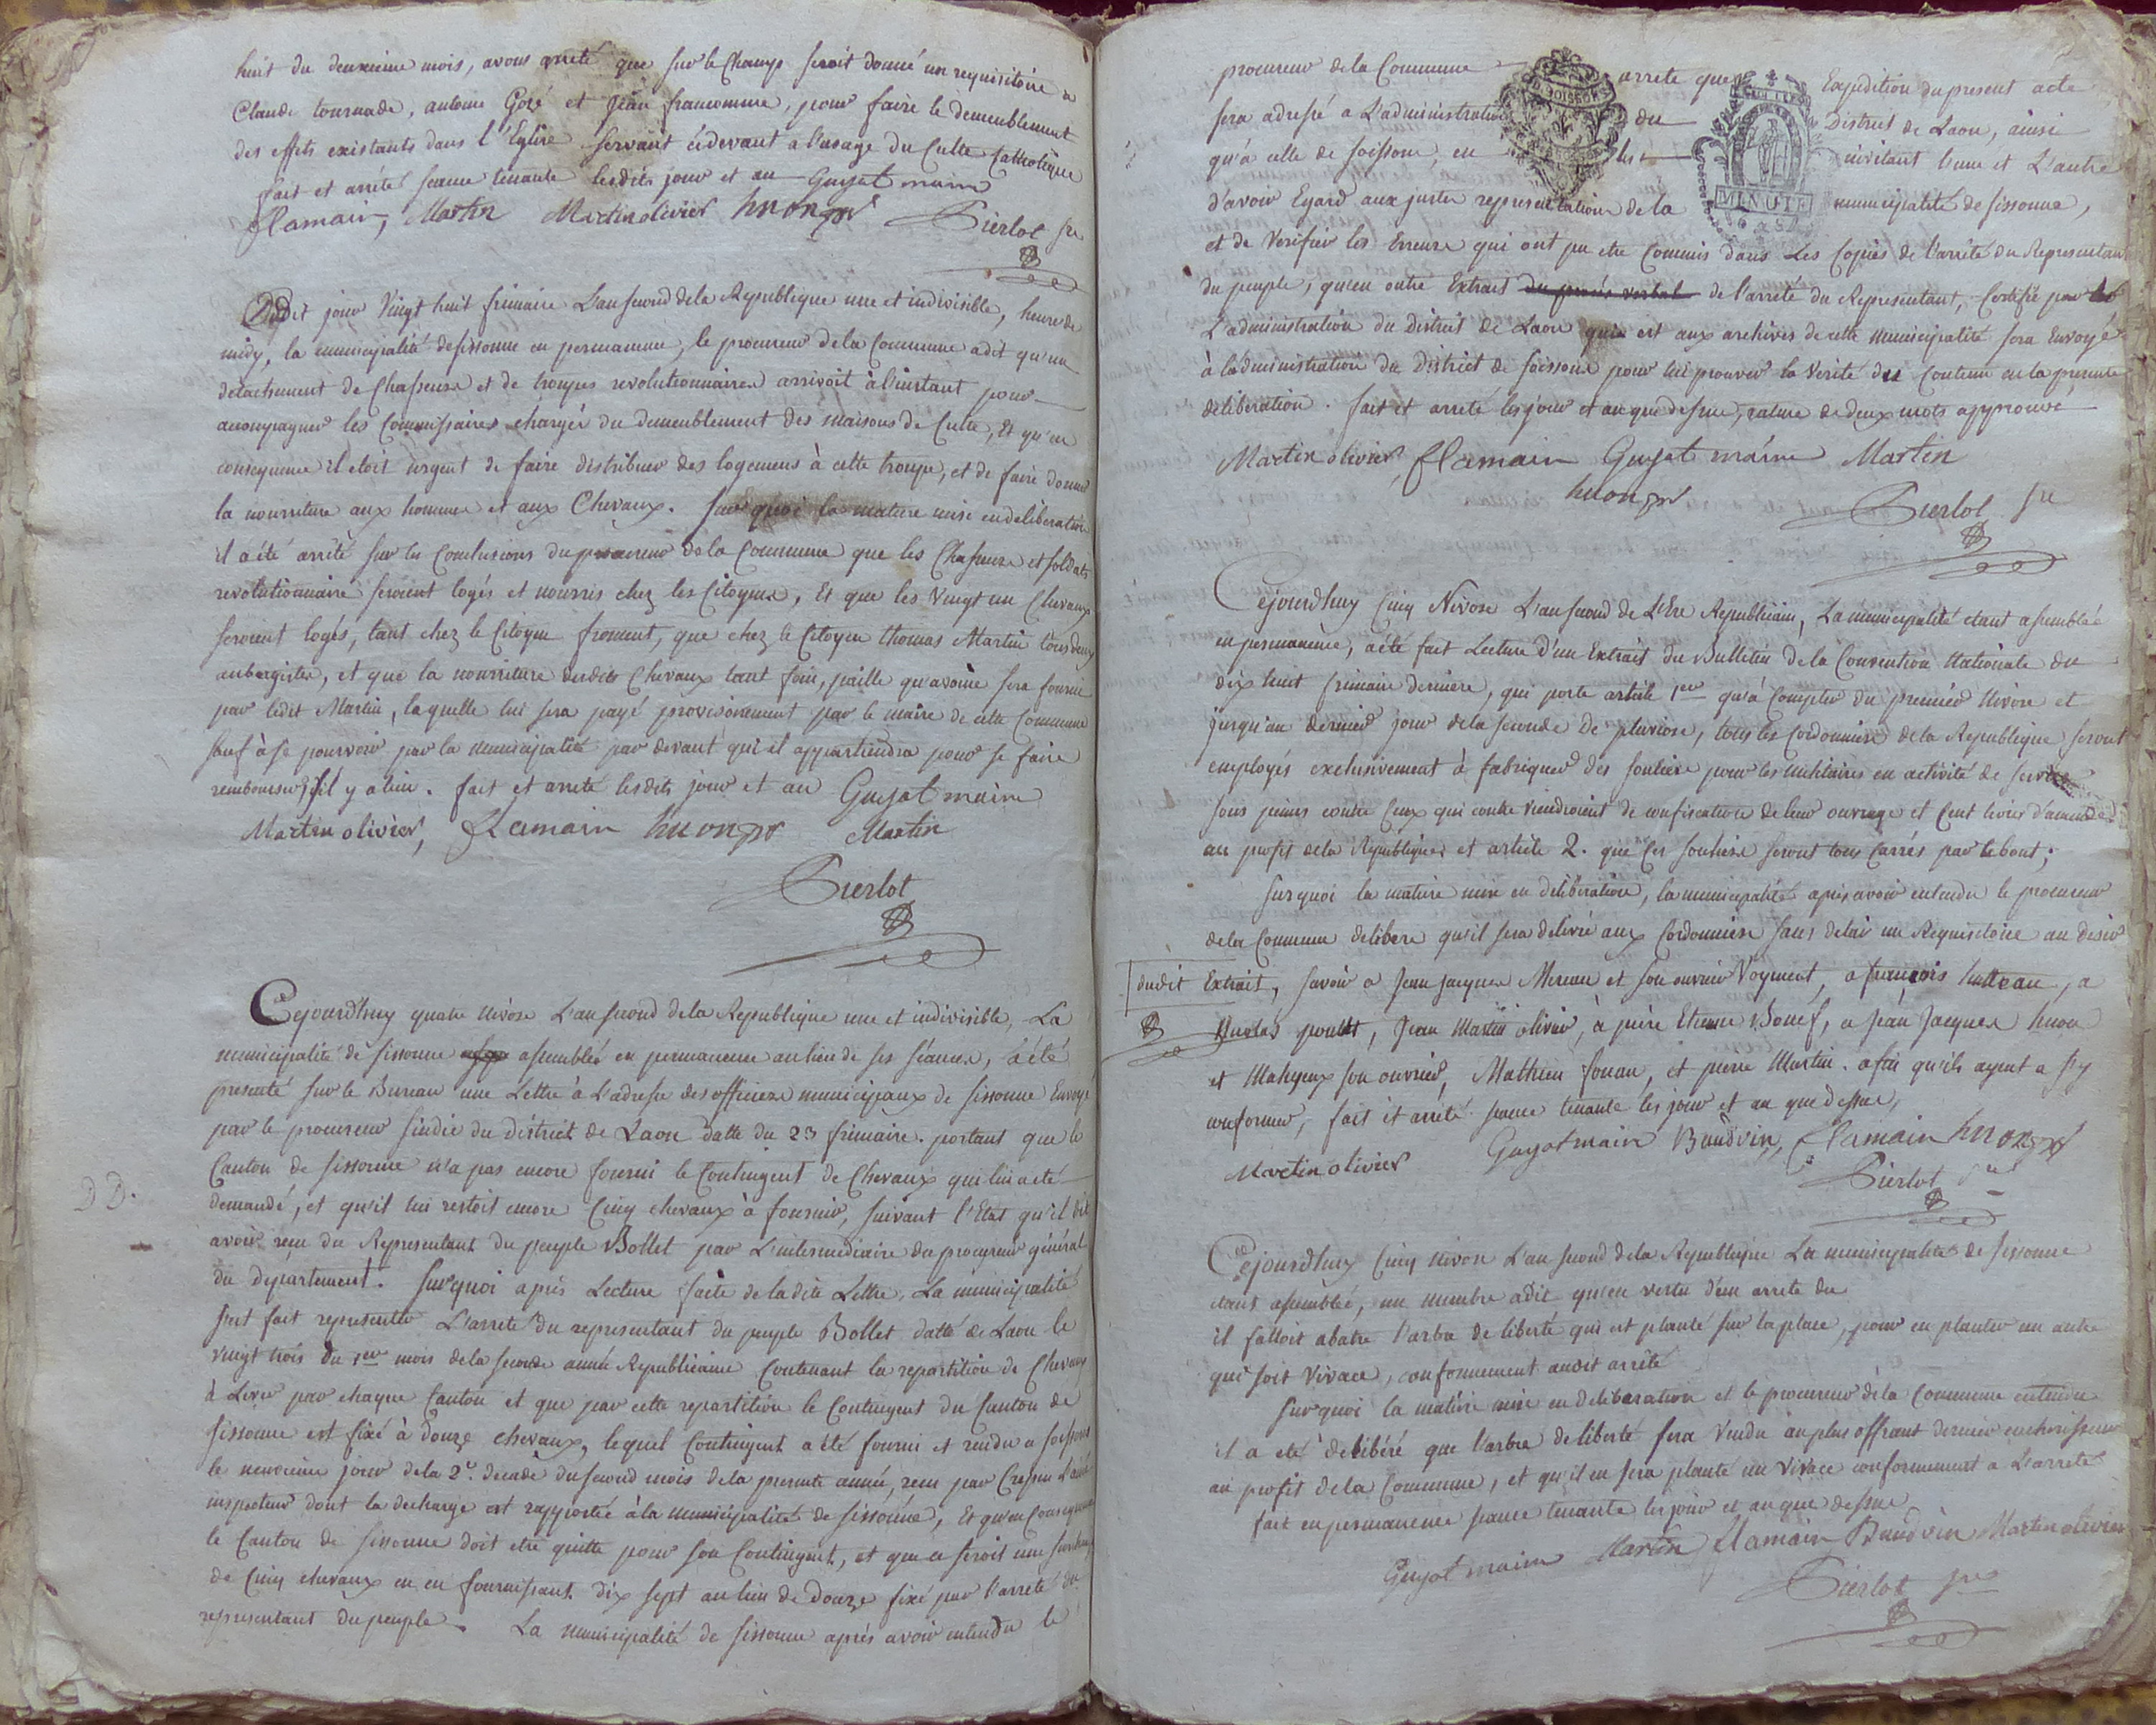 huit du deuxieme mois, avons arreté que sur le Champ seroit donné un requisitoire a
Claude tournade, antoine Gozé et Jean francomme, pour faire le demeublement
des effets existants dans l'Eglise servant cidevant a l'usage du Culte Catholique
fait et arrété seance tenante lesdits jour et an Guyot maire
flamain, Martin Martin olivier huon pr Pierlot sre
Dudit jour Vingt huit frimaire L'an second de la Republique une et indivisible, heure de
midy, la municipalité de sissonne en permanence, le procureur de la Commune a dit qu'un
detachement de Chasseurs et de troupes revolutionnaires arrivoit à l'instant pour
accompagner les Commissaires chargés du demeublement des maisons de Culte, Et qu'en
consequence il etoit urgent de faire distribuer des logemens à cette troupe, et de faire donner
la nourriture aux hommes et aux Chevaux. Sur quoi la matiere mise en deliberation
il a été arrêté sur les Conclusions du procureur de la Commune que les Chasseurs et soldats
revolutionnaire seroient logés et nourris chez les Citoyens, Et que les Vingt un Chevaux
seroient logés, tant chez le Citoyen froment, que chez le Citoyen thomas Martin tous deux
aubergistes, et que la nourriture desdits Chevaux tant foin, paille qu'avoine sera fournie
par ledit Martin, laquelle lui sera payé provisoirement par le maire de cette Commune
sauf à se pourvoir par la municipalité par devant qui il appartiendra pour se faire
rembourser s'il y a lieu. fait et arreté lesdits jour et an Guyot maire
Martin olivier, flamain huon pr Martin
Pierlot
Cejourd'huy quatre nivôse L'an second de la Republique une et indivisible, La
municipalité de sissonne assemblée en permanence au lieu de ses séances, a été
presenté sur le Bureau une Lettre à L'adresse des officiers municipaux de sissonne Envoyé
par le procureur sindic du district de Laon datte du 23 frimaire. portant que le
Canton de sissonne n'a pas encore fourni le Contingent de Chevaux qui lui a eté
DD.
demandé, et qu'il lui restoit encore Cinq chevaux à fournir, suivant l'Etat qu'il dit
avoir reçu du Representant du peuple Bollet par L'intermediaire du procureur général
du département. Surquoi après Lecture faite de la dite Lettre, La municipalité
s'est fait representer L'arrêté du representant du peuple Bollet datté de Laon le
vingt trois du 1er mois de la seconde année Republicaine Contenant la repartition de Chevaux
à Lever par chaque Canton et que par cette repartition le Contingent du Canton de
sissonne est fixé à douze chevaux, lequel Contingent a été fourni et rendu a soissons
le neuvieme jour de la 2e. decade du second mois de la presente année, reçu par Crepin L'ainé
inspecteur dont la decharge est rapportée à la municipalité de sissonne, Et qu'en Consequence
le Canton de sissonne doit etre quitte pour son Contingent, et que ce seroit une surcharge
de Cinq chevaux en en fournissant dix sept au lieu de douze fixé par l'arreté du
representant du peuple. La municipalité de sissonne après avoir entendu le
procureur de la Commune arrete que Expedition du present acte
sera adressé a L'administration du District de Laon, ainsi
qu'à celle de soissons, en les invitant l'une et L'autre
d'avoir Egard aux justes representations de la municipalité de sissonne,
MINUTE
et de Verifier les Erreurs qui ont pu etre Commis dans Les Copies de l'arrêté du Representant
du peuple, qu'en outre Extrait du procés verbal de l'arreté du Representant, Certifié par
L'administration du District de Laon qui est aux archives de cette municipalité sera Envoyé
à l'administration du District de soissons pour lui prouver la Verité du Contenu en la presente
deliberation. fait et arreté les jour et an que dessus, rature de deux mots approuvé
Martin olivier, flamain Guyot maire Martin
huon pr
Pierlot sre
Cejourd'huy Cinq Nivose L'an second de L'Ere Republicain, La municipalité etant assemblée
en permanence, a été fait Lecture d'un Extrait du Bulletin de la Convention Nationale du
dix huit frimaire derniere, qui porte article 1er qu'à Compter du premier Nivose et
jusqu'au dernier jour de la seconde De pluviose, tous les Cordonniers de la Republique seront
employés exclusivement à fabriquer des souliers pour les militaires en activité de service
sous peines contre Ceux qui contreviendroient de confiscation de leur ouvrage et Cent livres d'amende
au profit de la Republique et article 2. que Ces souliers seront tous Carrés par le bout;
Surquoi la matiere mise en deliberation, la municipalité après avoir entendu le procureur
de la Commune delibere qu'il sera delivré aux Cordonniers sans delai un Requisitoire au desir
dudit Extrait, savoir a Jean Jacques Mereau et son ouvrier Voyment, a françois hutteau, a
Nicolas poullet, Jean Martin olivier, à pierre Etienne Bouef, a Jean Jacques huon
et Mahyeux son ouvrier, Mathieu fouan, et pierre Martin. afin qu'ils ayent a s'y
conformer, fait et arreté seance tenante les jour et an que dessus,
Martin olivier Guyot main Baudvin, flamain huon pr
Pierlot sre
Cejourd'huy Cinq nivose L'an second de la Republique La municipalité de sissonne
etant assemblée, un membre a dit qu'en vertu d'un arrete du
il falloit abatre l'arbre de liberté qui est planté sur la place, pour en planter un autre
qui soit Vivace, conformement audit arrêté
Surquoi la matiere mise en deliberation et le procureur de la Commune entendu
il a eté delibéré que l'arbre de liberté sera Vendu au plus offrant dernier encherisseur
au profit de la Commune, et qu'il en sera planté un Vivace conformement a L'arreté
fait en permanence seance tenante les jour et an que dessus
Guyot maire Martin flamain Baudvin Martin olivier
Pierlot sre